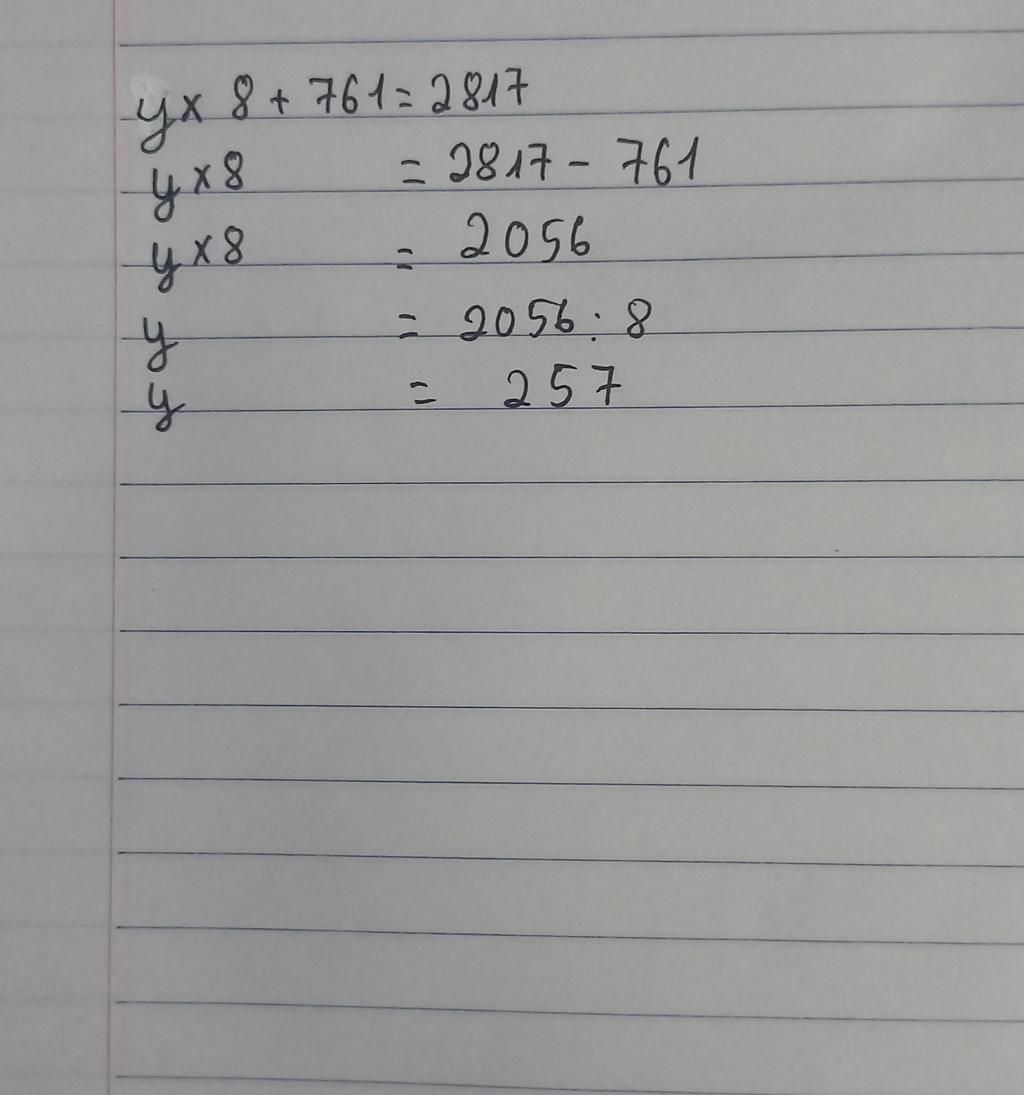 y x 8 + 761 = 2817
y x 8 = 2817 - 761
y x 8 = 2056
y = 2056 : 8
y = 257